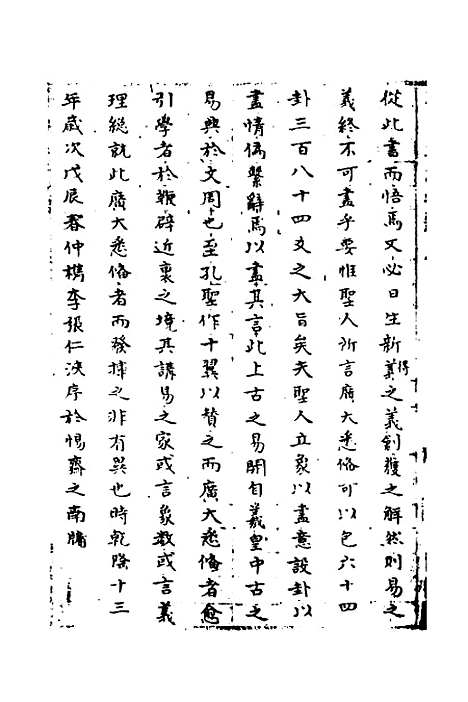 從此書而悟焉又必日生新得之義創獲之解然則易之
義終不可盡乎要惟聖人所言廣大悉俻可以包六十四
卦三百八十四爻之大旨矣夫聖人立象以盡意設卦以
盡情偽繫辭焉以盡其言此上古之易開自羲皇中古之
易興於文周也至孔聖作十翼以賛之而廣大悉俻者愈
引學者於鞭辟近裏之境其講易之家或言象數或言義
理總就此廣大悉俻者而發揮之非有異也時乾隆十三
年歲次戊辰春仲檇李張仁浹序於惕齋之南牖